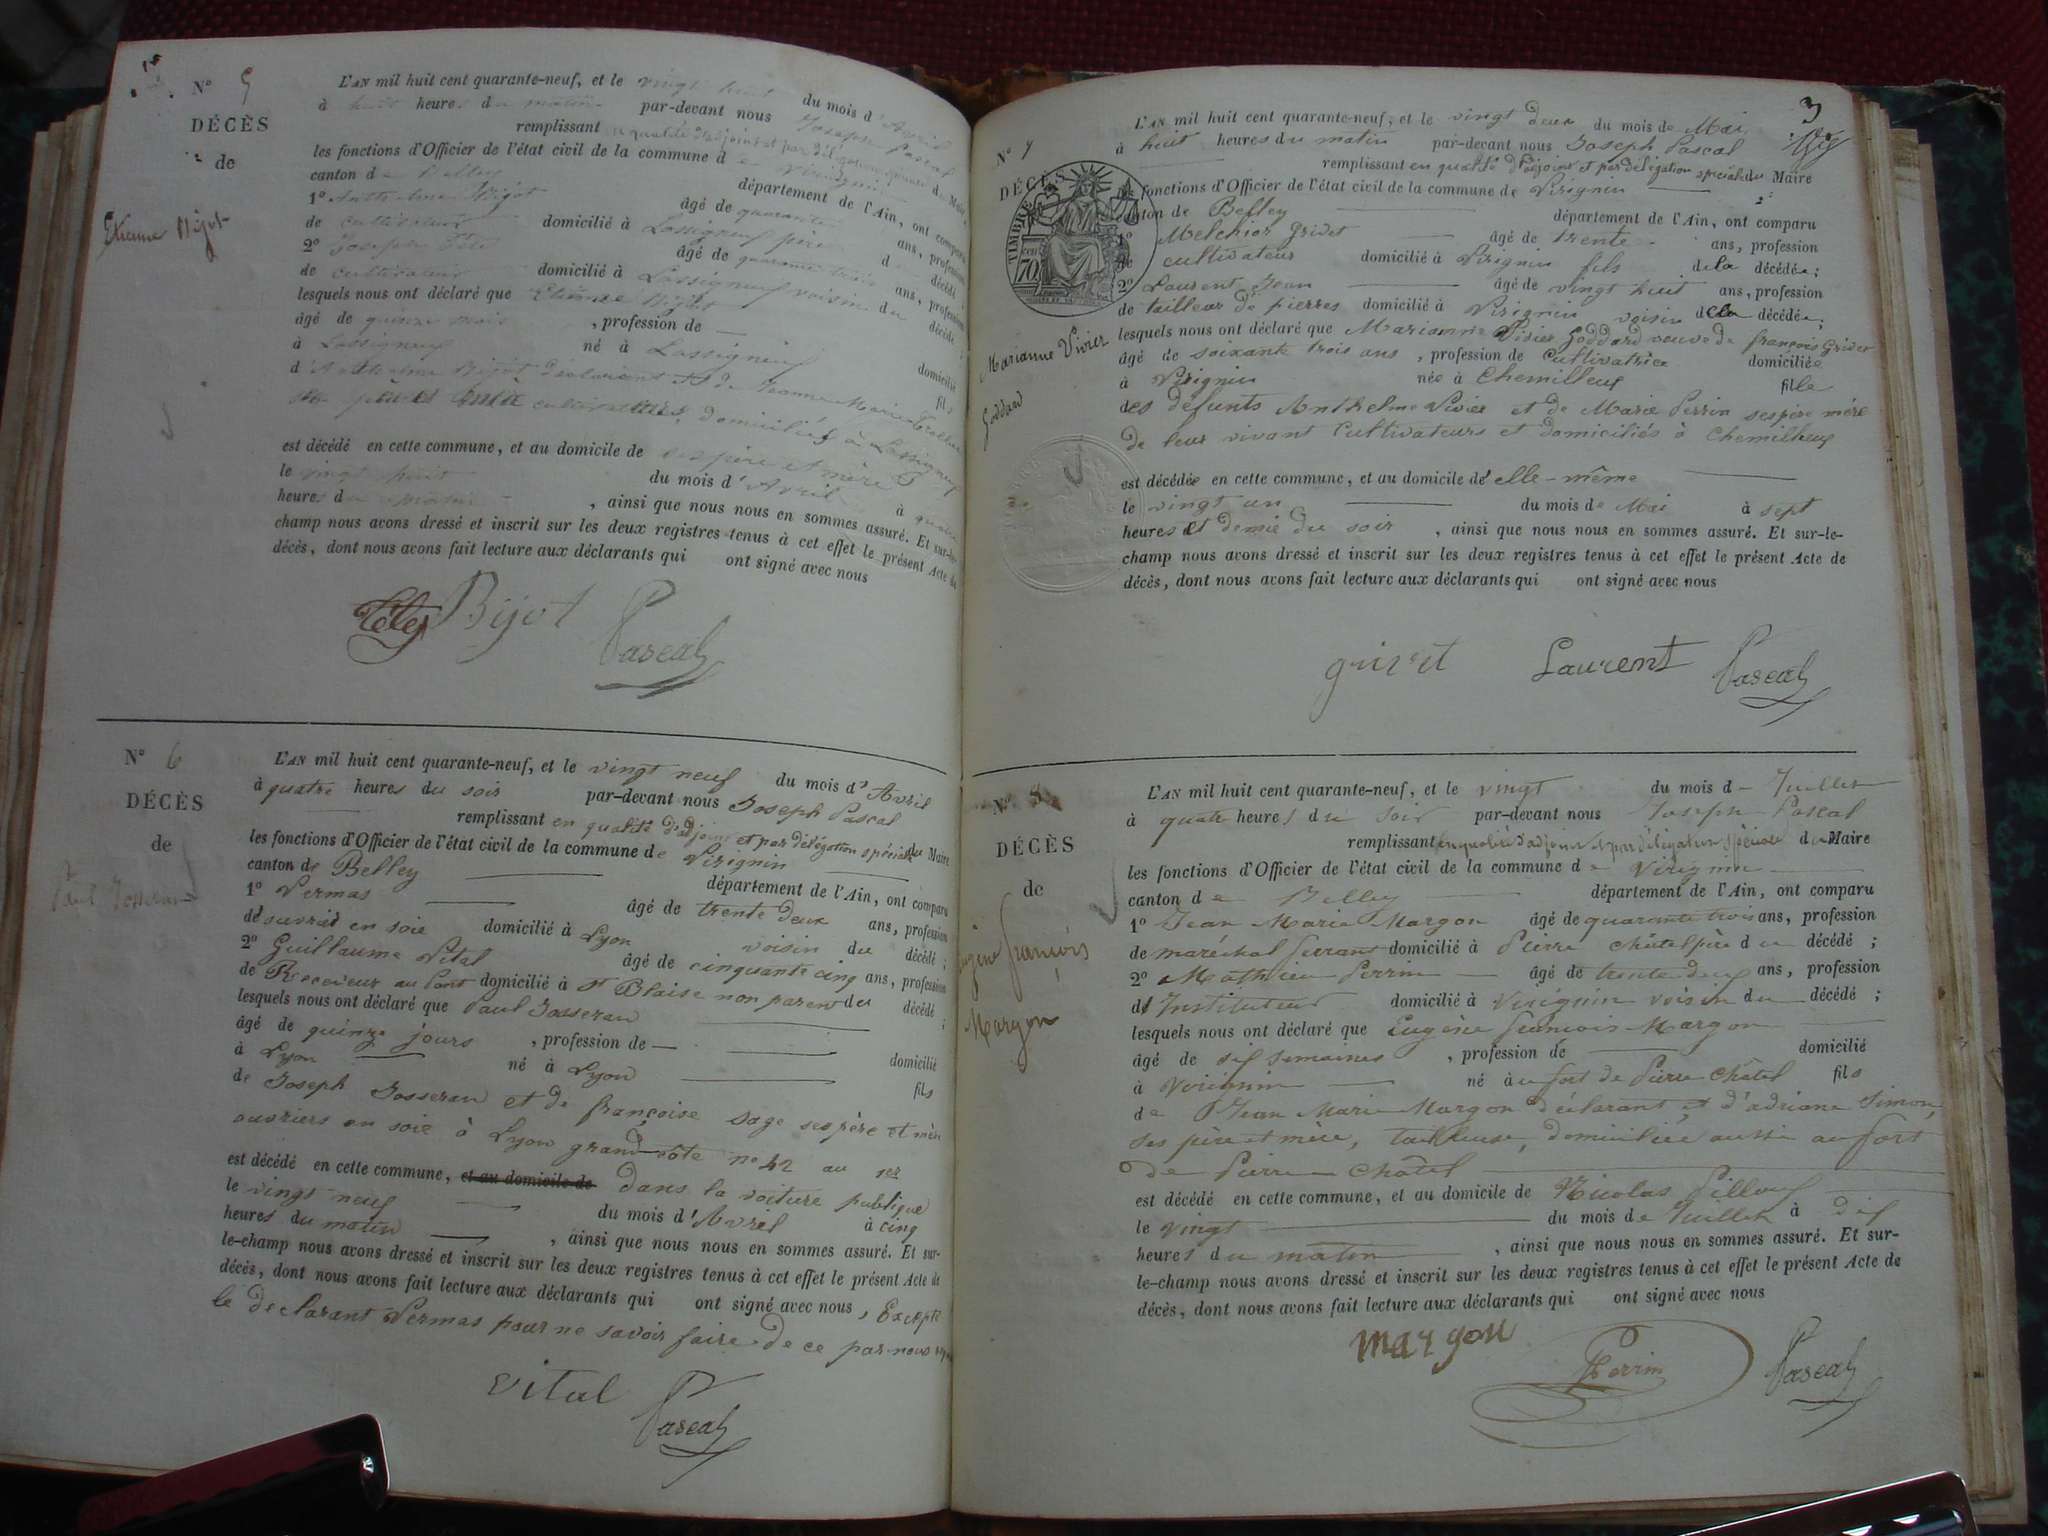 N° 5
DÉCÈS
de
Etienne Bijot
L'AN mil huit cent quarante-neuf, et le vingt huit du mois d'Avril
à huit heures du matin par-devant nous Joseph Pascal
remplissant en qualité d'adjoint et par délégation spéciale du Maire
les fonctions d'Officier de l'état civil de la commune de Virignin
canton de Belley département de l'Ain, ont comparu
1° Anthelme Bijot âgé de quarante ans, profession
de cultivateur domicilié à Lassigneu père d décédé
2° Joseph âgé de quarante trois ans, profession
de cultivateur domicilié à Lassigneu voisin du décédé ;
lesquels nous ont déclaré que Etienne Bijot
âgé de quinze mois , profession de — domicilié
à Lassigneu né à Lassigneu fils
d'Anthelme Bijot déclarant et de Jeanne Marie
ses père et mère cultivateurs, domiciliés à Lassigneu
est décédé en cette commune, et au domicile de ses père et mère
le vingt huit du mois d'Avril à
heures du matin , ainsi que nous nous en sommes assuré. Et sur-le-
champ nous avons dressé et inscrit sur les deux registres tenus à cet effet le présent Acte de
décès, dont nous avons fait lecture aux déclarants qui ont signé avec nous
Bijot Pascal
N° 6
DÉCÈS
de
Paul Josseran
L'AN mil huit cent quarante-neuf, et le vingt neuf du mois d'Avril
à quatre heures du soir par-devant nous Joseph Pascal
remplissant en qualité d'adjoint et par délégation spéciale du Maire
les fonctions d'Officier de l'état civil de la commune de Virignin
canton de Belley département de l'Ain, ont comparu
1° Vermas âgé de trente deux ans, profession
d'ouvrier en soie domicilié à Lyon voisin du décédé ;
2° Guillaume Vital âgé de cinquante cinq ans, profession
de Receveur au Pont domicilié à St Blaise non parent du décédé ;
lesquels nous ont déclaré que Paul Josseran
âgé de quinze jours , profession de — domicilié
à Lyon né à Lyon fils
de Joseph Josseran et de françoise Sage ses père et mère
ouvriers en soie à Lyon grand côte n° 42 au 1er
est décédé en cette commune, et au domicile de dans la voiture publique
le vingt neuf du mois d'Avril à cinq
heures du matin , ainsi que nous nous en sommes assuré. Et sur-
le-champ nous avons dressé et inscrit sur les deux registres tenus à cet effet le présent Acte de
décès, dont nous avons fait lecture aux déclarants qui ont signé avec nous, Excepté
le déclarant Vermas pour ne savoir faire de ce par nous
Vital Pascal
3
N° 7
DÉCÈS
TIMBRE
70
Marianne Vivier
Goddard
L'AN mil huit cent quarante-neuf, et le vingt deux du mois de Mai
à huit heures du matin par-devant nous Joseph Pascal
remplissant en qualité d'adjoint et par délégation spéciale du Maire
les fonctions d'Officier de l'état civil de la commune de Virignin
canton de Belley département de l'Ain, ont comparu
1° Melchior Grivet âgé de trente ans, profession
de cultivateur domicilié à Virignin fils de la décédée ;
2° Laurent Jean âgé de vingt huit ans, profession
de tailleur de pierres domicilié à Virignin voisin de la décédée ;
lesquels nous ont déclaré que Marianne Vivier Goddard veuve de françois Grivet
âgé de soixante trois ans , profession de Cultivatrice domiciliée
à Virignin née à Chemillieux fille
des défunts Anthelme Vivier et de Marie Perrin ses père mère
de leur vivant Cultivateurs et domiciliés à Chemillieux
est décédée en cette commune, et au domicile d'elle-même
le vingt un du mois de Mai à sept
heures et demie du soir , ainsi que nous nous en sommes assuré. Et sur-le-
champ nous avons dressé et inscrit sur les deux registres tenus à cet effet le présent Acte de
décès, dont nous avons fait lecture aux déclarants qui ont signé avec nous
grivet Laurent Pascal
N° 8
DÉCÈS
de
Eugène françois
Margon
L'AN mil huit cent quarante-neuf, et le vingt du mois de Juillet
à quatre heures du soir par-devant nous Joseph Pascal
remplissant en qualité d'adjoint et par délégation spéciale du Maire
les fonctions d'Officier de l'état civil de la commune de Virignin
canton de Belley département de l'Ain, ont comparu
1° Jean Marie Margon âgé de quarante trois ans, profession
de maréchal ferrant domicilié à Pierre Châtel père du décédé ;
2° Mathieu Perrin âgé de trente deux ans, profession
d'Instituteur domicilié à Virignin voisin du décédé ;
lesquels nous ont déclaré que Eugène françois Margon
âgé de six semaines , profession de domicilié
à Virignin né au fort de Pierre Châtel fils
de Jean Marie Margon déclarant et d'adriane Simon,
ses père et mère, tailleuse, domiciliée aussi au fort
de Pierre Châtel
est décédé en cette commune, et au domicile de Nicolas Pilloux
le vingt du mois de Juillet à dix
heures du matin , ainsi que nous nous en sommes assuré. Et sur-
le-champ nous avons dressé et inscrit sur les deux registres tenus à cet effet le présent Acte de
décès, dont nous avons fait lecture aux déclarants qui ont signé avec nous
margon Perrin Pascal